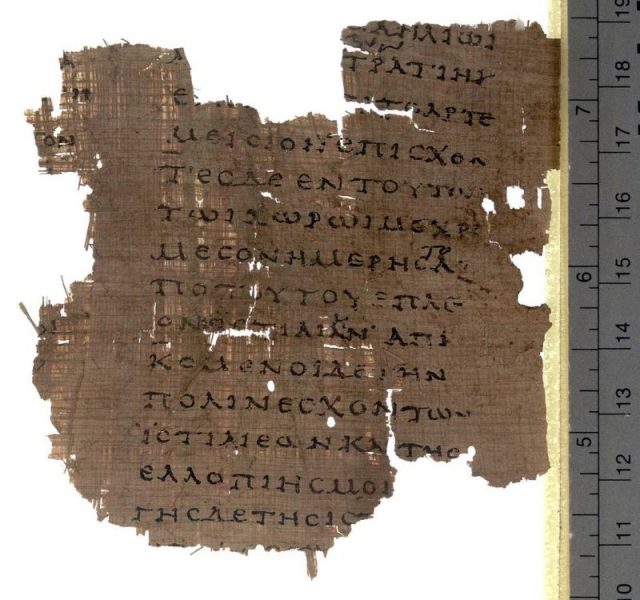 ΑΗΛΙΩΙ
ΤΡΑΤΙΗΙ
ΙΤΟΑΡΤΕ
ΟΝ ΜΕΙϹΙΟΝ ΕΠΙϹΧΟΝ
ΤΕϹΔΕΕΝΤΟΥΤΩ
ΤΩΙΧΩΡΩΙΜΕΧΡΙ
ΜΕϹΟΝΗΜΕΡΗϹΑ
ΠΟΤΟΥΤΟΥΕΠΛΕ
ΟΝ ΤΙΑΙΑΝ ΑΠΙ
ΚΟΜΕΝΟΙΔΕΤΗΝ
ΠΟΛΙΝΕϹΧΟΝΤΩΝ
ΙϹΤΙΑΙΕΩΝΚΑΙΤΗϹ
ΕΛΛΟΠΙΗϹΜΟΙ
ΓΗϹΔΕΤΗϹΙϹ
19
18
17
16
15
14
13
12
11
10
7
6
5